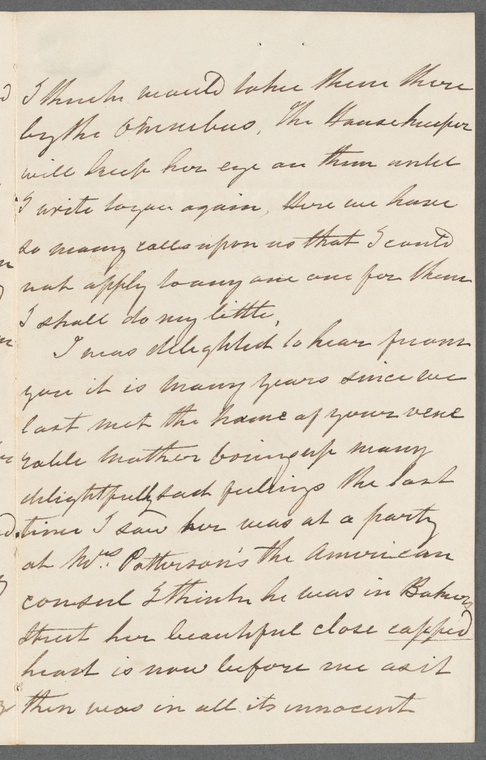 I think would take them there
by the Omnibus, The Housekeeper
will keep her eye on them until
I write to you again, Here we have
so many calls upon us that I could
not apply to any one one for them
I shall do my little,
I was delighted to hear from
you it is many years since we
last met the name of your vene
rable mother brings up many
delightfully sad feelings the last
time I saw her was at a party
at Mrs. Patterson's the American
consul I think he was in Baker
Street her beautiful close capped
heart is now before me as it
then was in all its innocent